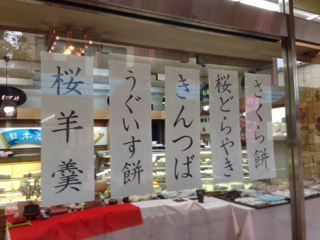 さくら餅
桜どらやき
きんつば
うぐいす餅
桜羊羹